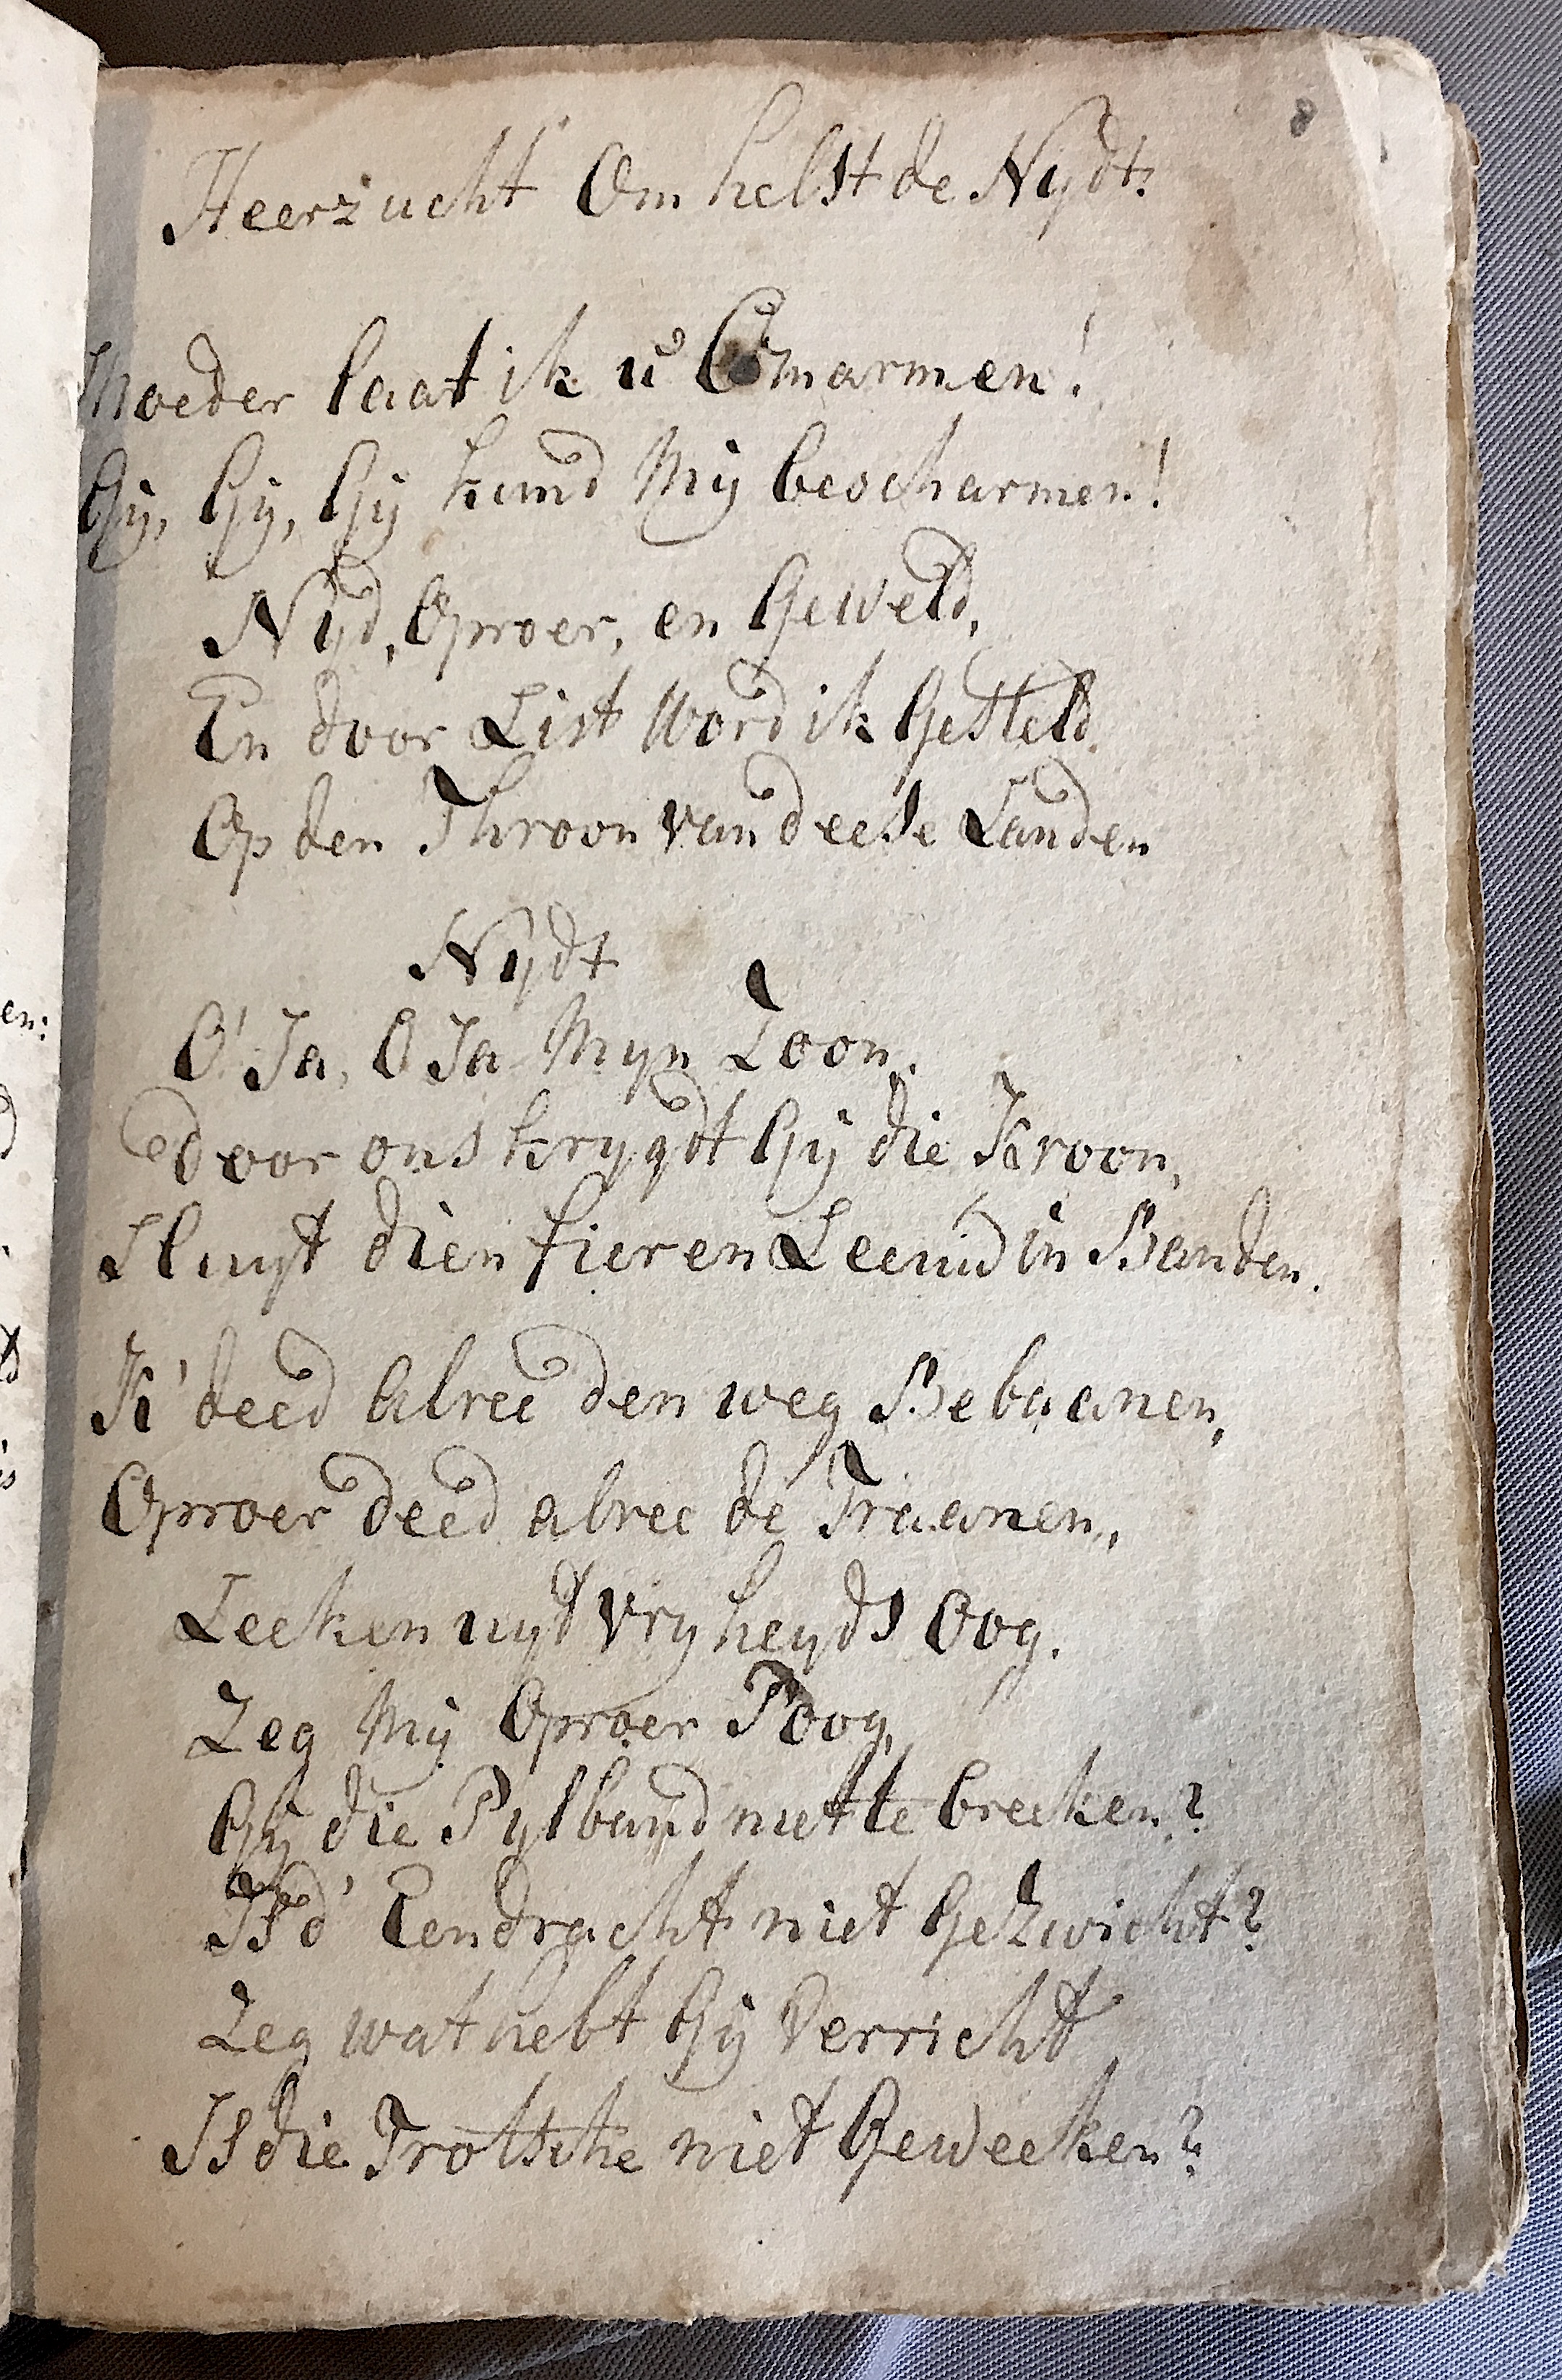 8
Heerzucht Om helst de Nydt.
Moeder laat ik u Omarmen!
Gij, Gij, Gij kund Mij bescharmen!
Nijd, Oproer, en Geweld,
En door List Word ik Gesteld
Op den Throon van deese Landen
Nijdt
O! Ja, O Ja Myn Zoon,
door ons krygdt Gij die Kroon,
Sluyt dien fieren Leeuw in Banden.
K' deed alree den weg Bebaanen,
Oproer deed alree de Traanen,
Leeken uyt vryheyds Oog.
Zeg Mij Oproer Poog,
Gij die Pylband niet te breeken?
Is d' Eendracht niet Gezwicht?
Zeg wat hebt Gij Verricht
Is die Trotsche niet Geweeken?
en: